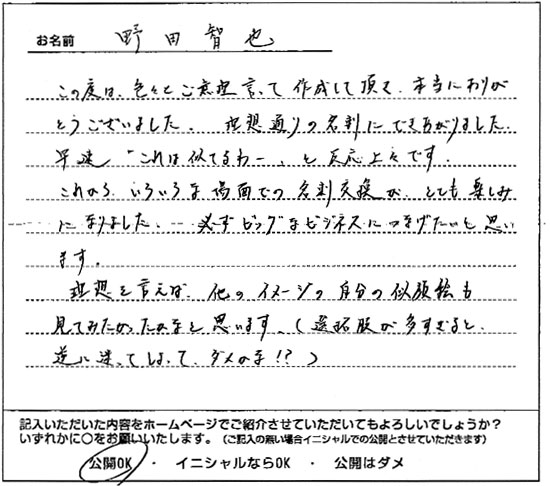 お名前 野田智也
この度は、色々とご無理言って作成して頂き、本当にありが
とうございました。 理想通りの名刺にできあがりました。
早速「これは似てるわー」と反応上々です。
これから、いろいろな場面での名刺交換が、とても楽しみ
になりました。 必ずビッグなビジネスにつなげたいと思い
ます。
理想を言えば、他のイメージの自分の似顔絵も
見てみたかったかなと思います。(選択肢が多すぎると、
逆に迷ってしまって、ダメかな!?)
記入いただいた内容をホームページでご紹介させていただいてもよろしいでしょうか?
いずれかに○をお願いいたします。(ご記入の無い場合イニシャルでの公開とさせていただきます)
公開OK ・ イニシャルならOK ・ 公開はダメ